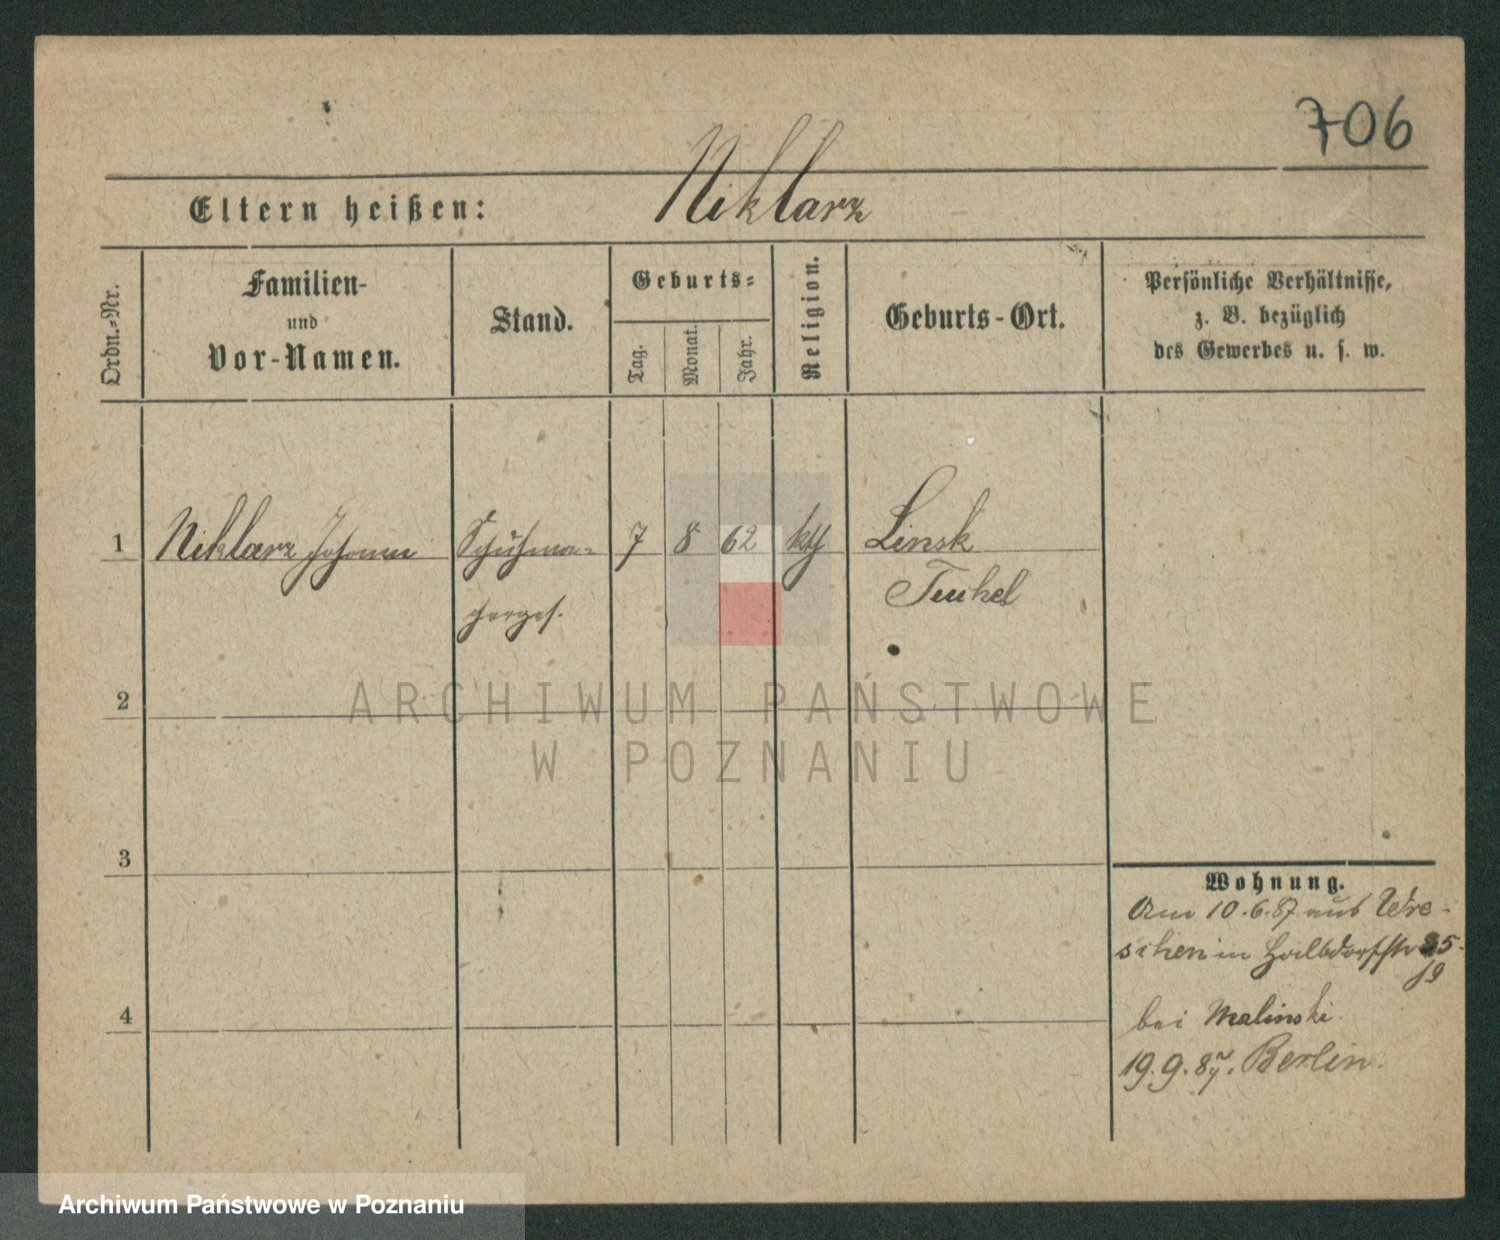 706
Eltern heißen: Niklarz
Ordn.=Nr.
Familien-
und
Vor-Namen.
Stand.
Geburts=
Tag.
Monat.
Jahr.
Religion.
Geburts-Ort.
Persönliche Verhältnisse,
z. B. bezüglich
des Gewerbes u. s. w.
1 Niklarz Johann Schuhma= 7 8 62 kth Linsk
cherges. Tuchel
2
ARCHIWUM PAŃSTWOWE
W POZNANIU
3
4
Wohnung.
Am 10.6.87 aus Wre-
schen in
bei Malinski
19.9.87. Berlin.
Archiwum Państwowe w Poznaniu